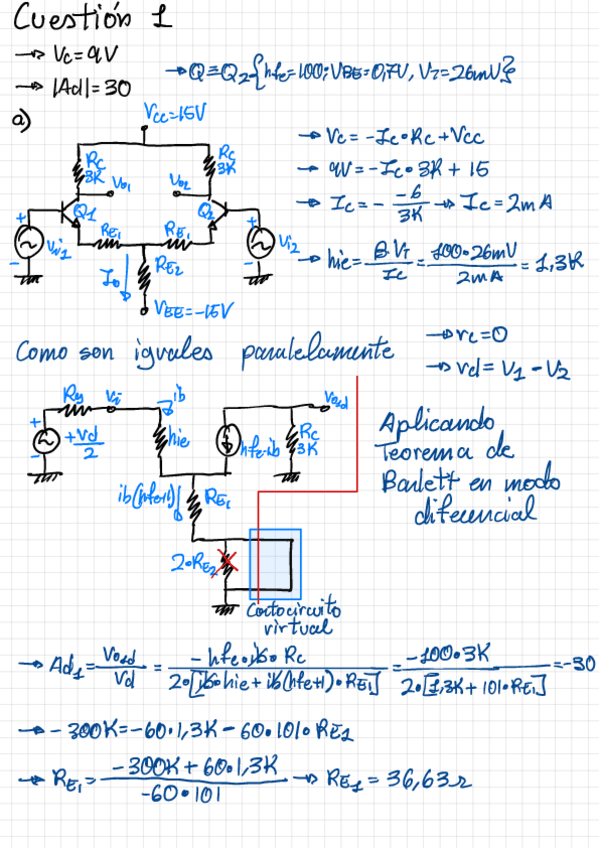 Cuestión 1
→ Vc = 9V
→ |Ad| = 30
→ Q ≡ Q2 {hfe = 100; VBE = 0,7V, VT = 26mV}
a)
Vcc = 15V
Rc
3K
Vo1
Vo2
Rc
3K
+
Vi1
-
Q1
RE1
RE1
Q2
+
Vi2
-
Io
RE2
VEE = -15V
→ Vc = -Ic · Rc + Vcc
→ 9V = -Ic · 3K + 15
→ Ic = - -6/3K → Ic = 2mA
→ hie = β·VT/Ic = 100·26mV/2mA = 1,3K
Como son iguales paralelamente
→ vc = 0
→ vd = V1 - V2
Rg
Vi
ib
Vo1d
+
+Vd/2
-
hie
hfe·ib
Rc
3K
ib(hfe+1)
RE1
2·RE2
Cortocircuito
virtual
Aplicando
Teorema de
Barlett en modo
diferencial
→ Ad1 = Vo1d/Vd = -hfe·ib·Rc / 2·[ib·hie + ib(hfe+1)·RE1] = -100·3K / 2·[1,3K + 101·RE1] = -30
→ - 300K = -60·1,3K - 60·101·RE1
→ RE1 = -300K + 60·1,3K / -60·101 → RE1 = 36,63Ω